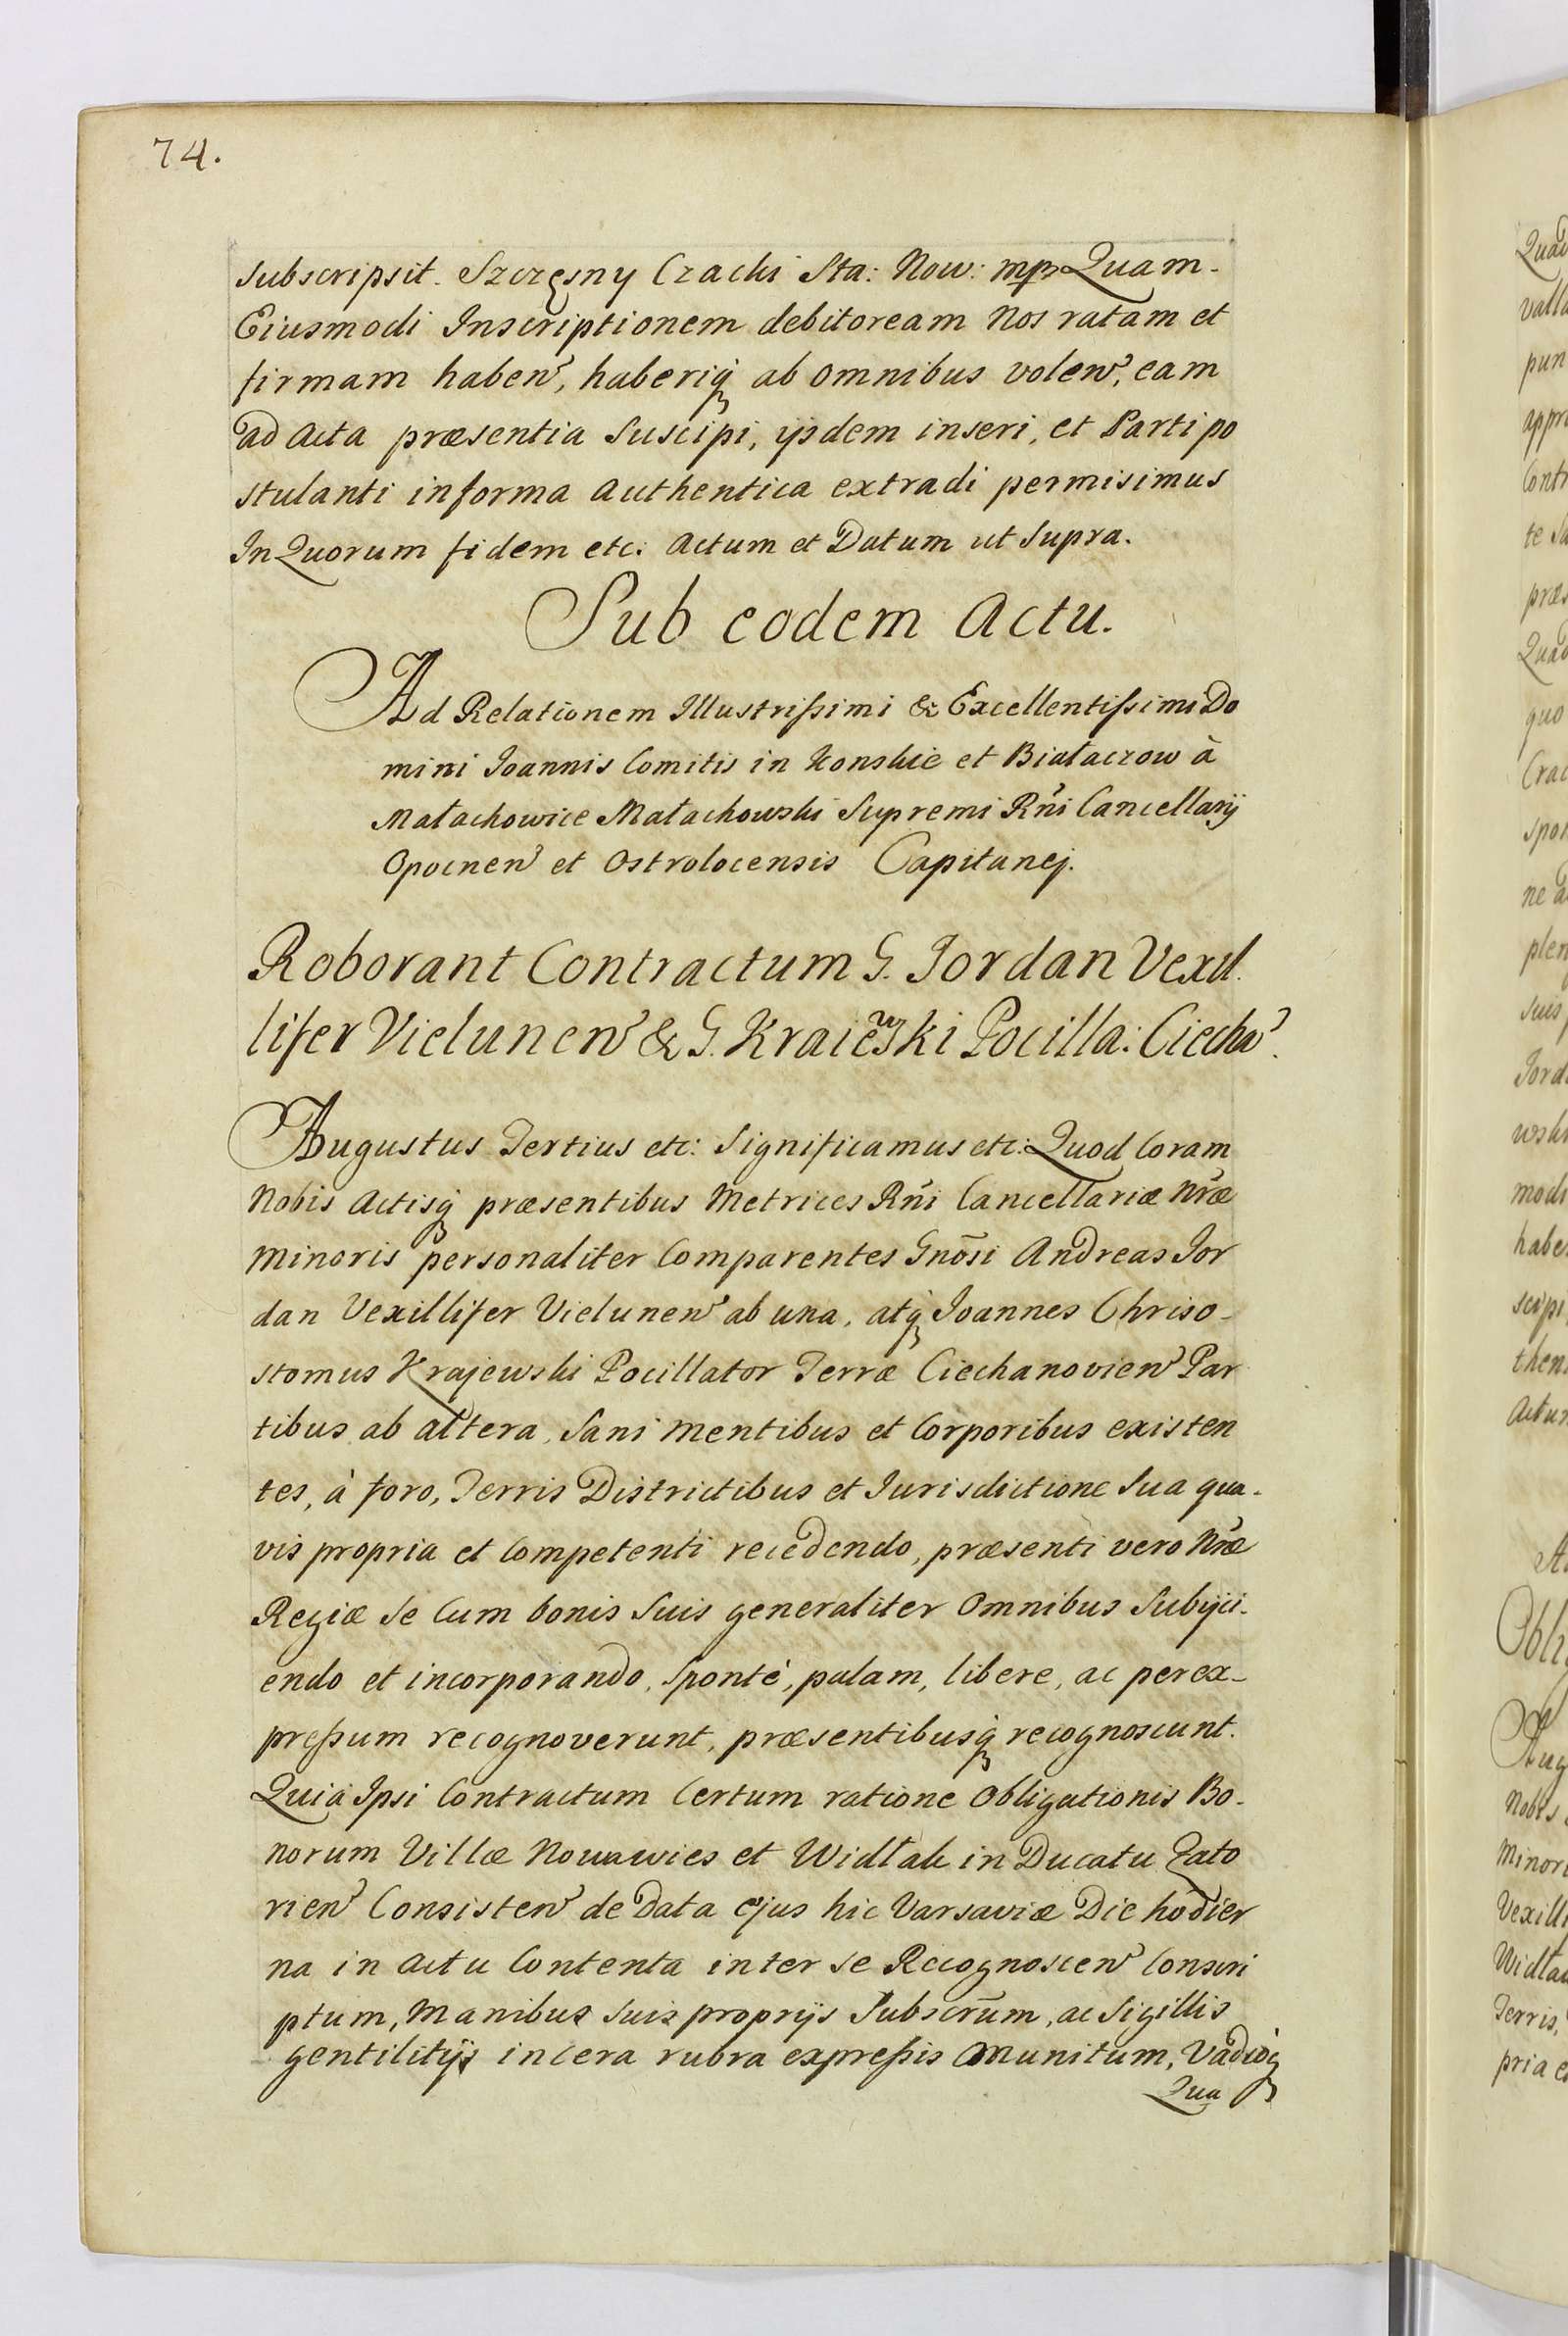 74.
subscripsit. Szczęsny Czacki Sta: Now: mp Quam-
Eiusmodi Inscriptionem debitoream Nos ratam et
firmam haben̄, haberiq́ʒ ab omnibus volen̄, eam
ad Acta præsentia suscipi, ijsdem inseri, et Parti po
stulanti in forma authentica extradi permisimus
In Quorum fidem etc: Actum et Datum ut Supra.
Sub eodem Actu.
Ad Relationem Illustrißimi & Excellentißimi Do
mini Joannis Comitis in Konskie et Białaczow à
Małachowice Małachowski Supremi Rńi Cancellarij
Opocnen̄ et Ostrolocensis Capitanej.
Roborant Contractum G. Jordan Vexil
lifer Vielunen̄ & G. Kraiewski Pocilla: Ciechā.
Augustus Tertius etc: Significamus etc: Quod Coram
Nobis Actisq́ʒ præsentibus Metrices Rńi Cancellariæ Nr̄æ
Minoris personaliter Comparentes Gnōsi Andreas Jor
dan Vexillifer Vielunen̄ ab una, atq́ʒ Joannes Chriso-
stomus Krajewski Pocillator Terræ Ciechanovien̄ Par
tibus ab altera, Sani mentibus et Corporibus existen
tes, à foro, Terris Districtibus et Jurisdictione Sua qua-
vis propria et Competenti recedendo, præsenti vero Nr̄æ
Regiæ se Cum bonis Suis generaliter Omnibus Subijci-
endo et incorporando, Spontè, palam, libere, ac per ex-
preßum recognoverunt, præsentibusq́ʒ recognoscunt.
Quia Ipsi Contractum Certum ratione Obligationis Bo-
norum Villæ Nowawies et Widłak in Ducatu Zato
rien̄ Consisten̄ de Data ejus hic Varsaviæ Die hodier
na in Actu Contenta inter se Recognoscen̄ Conscri
ptum, Manibus suis proprijs Subscrūm, ac Sigillis
gentilitijs in cera rubra expreßis Cōmunitum, Vadioq́ʒ
Qua